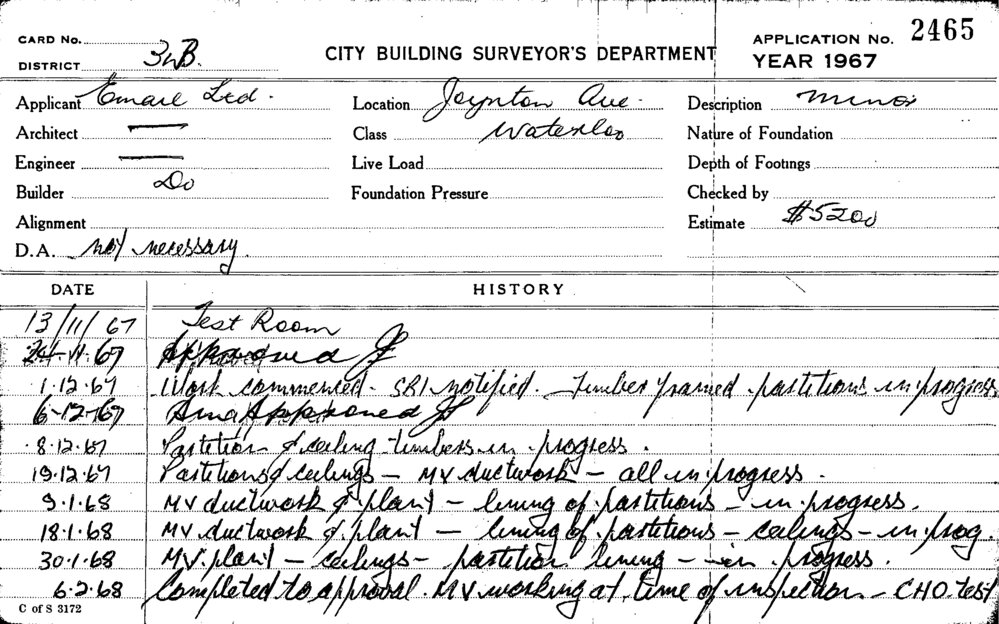 CARD No.
DISTRICT 3WB.
CITY BUILDING SURVEYOR'S DEPARTMENT
APPLICATION No. 2465
YEAR 1967
Applicant Email Ltd.
Location Joynton Ave.
Description Minor
Architect —
Class Waterloo
Nature of Foundation
Engineer —
Live Load
Depth of Footings
Builder Do
Foundation Pressure
Checked by
Alignment
Estimate $5200
D.A. not necessary.
DATE HISTORY
13/11/67 Test Room
11.67 Approved
1.12.67 Work commenced. SRI notified. Timber framed partitions in progress
6-12-67 Approved
8.12.67 Partition & ceiling timbers in progress.
19.12.67 Partitions & ceilings — MV ductwork — all in progress.
9.1.68 MV ductwork & plant — lining of partitions — in progress.
18.1.68 MV ductwork & plant — lining of partitions — ceilings — in prog.
30.1.68 MV plant — ceilings — partition lining — in progress.
6.2.68 Completed to approval. MV working at time of inspection — CHO test
C of S 3172